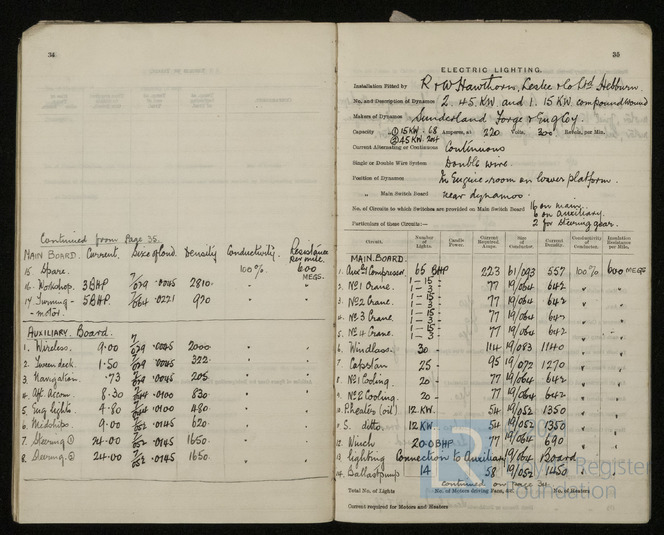 34
Continued from Page 35.
MAIN BOARD. Current. Size of Cond. Density Conductivity. Resistance Per mile.
15. Spare. 100% 600 MEGS.
16. Workshop. 3 BHP 7/029 .0045 2810
17. Turning-motor. 5 BHP. 7/064 .0221 970
AUXILIARY. Board.
1. Wireless. 9.00 7/029 .0045 2000
2. Tween deck. 1.50 7/029 .0045 322
3. Navigation. .73 7/029 .0045 205
4. Aft. Accom. 8.30 7/044 .0100 830
5. Eng lights. 4.80 7/044 .0100 480
6. Midships. 9.00 7/052 .0145 620
7. Steering ① 24.00 7/052 .0145 1650
8. Steering ② 24.00 7/052 .0145 1650
35
ELECTRIC LIGHTING.
Installation Fitted by R & W Hawthorn, Leslie & Co Ltd. Hebburn.
No. and Description of Dynamos 2. 45 KW and 1. 15 KW. compound wound
Makers of Dynamos Sunderland Forge & Eng Coy.
Capacity ① 15 KW. 68 Amperes, at 220 Volts, 300 Revols. per Min.
② 45 KW. 204
Current Alternating or Continuous Continuous
Single or Double Wire System Double wire.
Position of Dynamos In Engine-room on lower platform.
„ Main Switch Board near dynamos.
No. of Circuits to which Switches are provided on Main Switch Board 16 on main.
6 on Auxiliary.
Particulars of these Circuits:— 2 for Steering gear.
Circuit. Number of Lights. Candle Power. Current Required Amps. Size of Conductor. Current Density. Conductivity of Conductor. Insulation Resistance per Mile.
MAIN BOARD.
1. Auxy Compressor. 65 BHP 223 61/093 557 100% 600 MEGS
2. No 1 Crane. 1-15- 1-3- 77 19/064 642
3. No 2 Crane. 1-15- 1-3- 77 19/064 642
4. No 3 Crane 1-15- 1-3- 77 19/064 642
5. No 4 Crane. 1-15- 1-3- 77 19/064 642
6. Windlass. 30 - 114 19/083 1140
7. Capstan 25 - 95 19/072 1270
8. No 1 Cooling. 20 - 77 19/064 642
9. No 2 Cooling. 20 - 77 19/064 642
10. P. heater (oil) 12 KW. 54 19/052 1350
11. S. ditto. 12 KW 54 19/052 1350
12. Winch 20.0 BHP 77 19/064 690
13. Lighting Connection to Auxiliary 19/064 Board
14. Ballast pump 14 58 19/052 1450
continued on Page 34
Total No. of Lights No. of Motors driving Fans, &c. No. of Heaters
Current required for Motors and Heaters
Lloyd's Register
Foundation